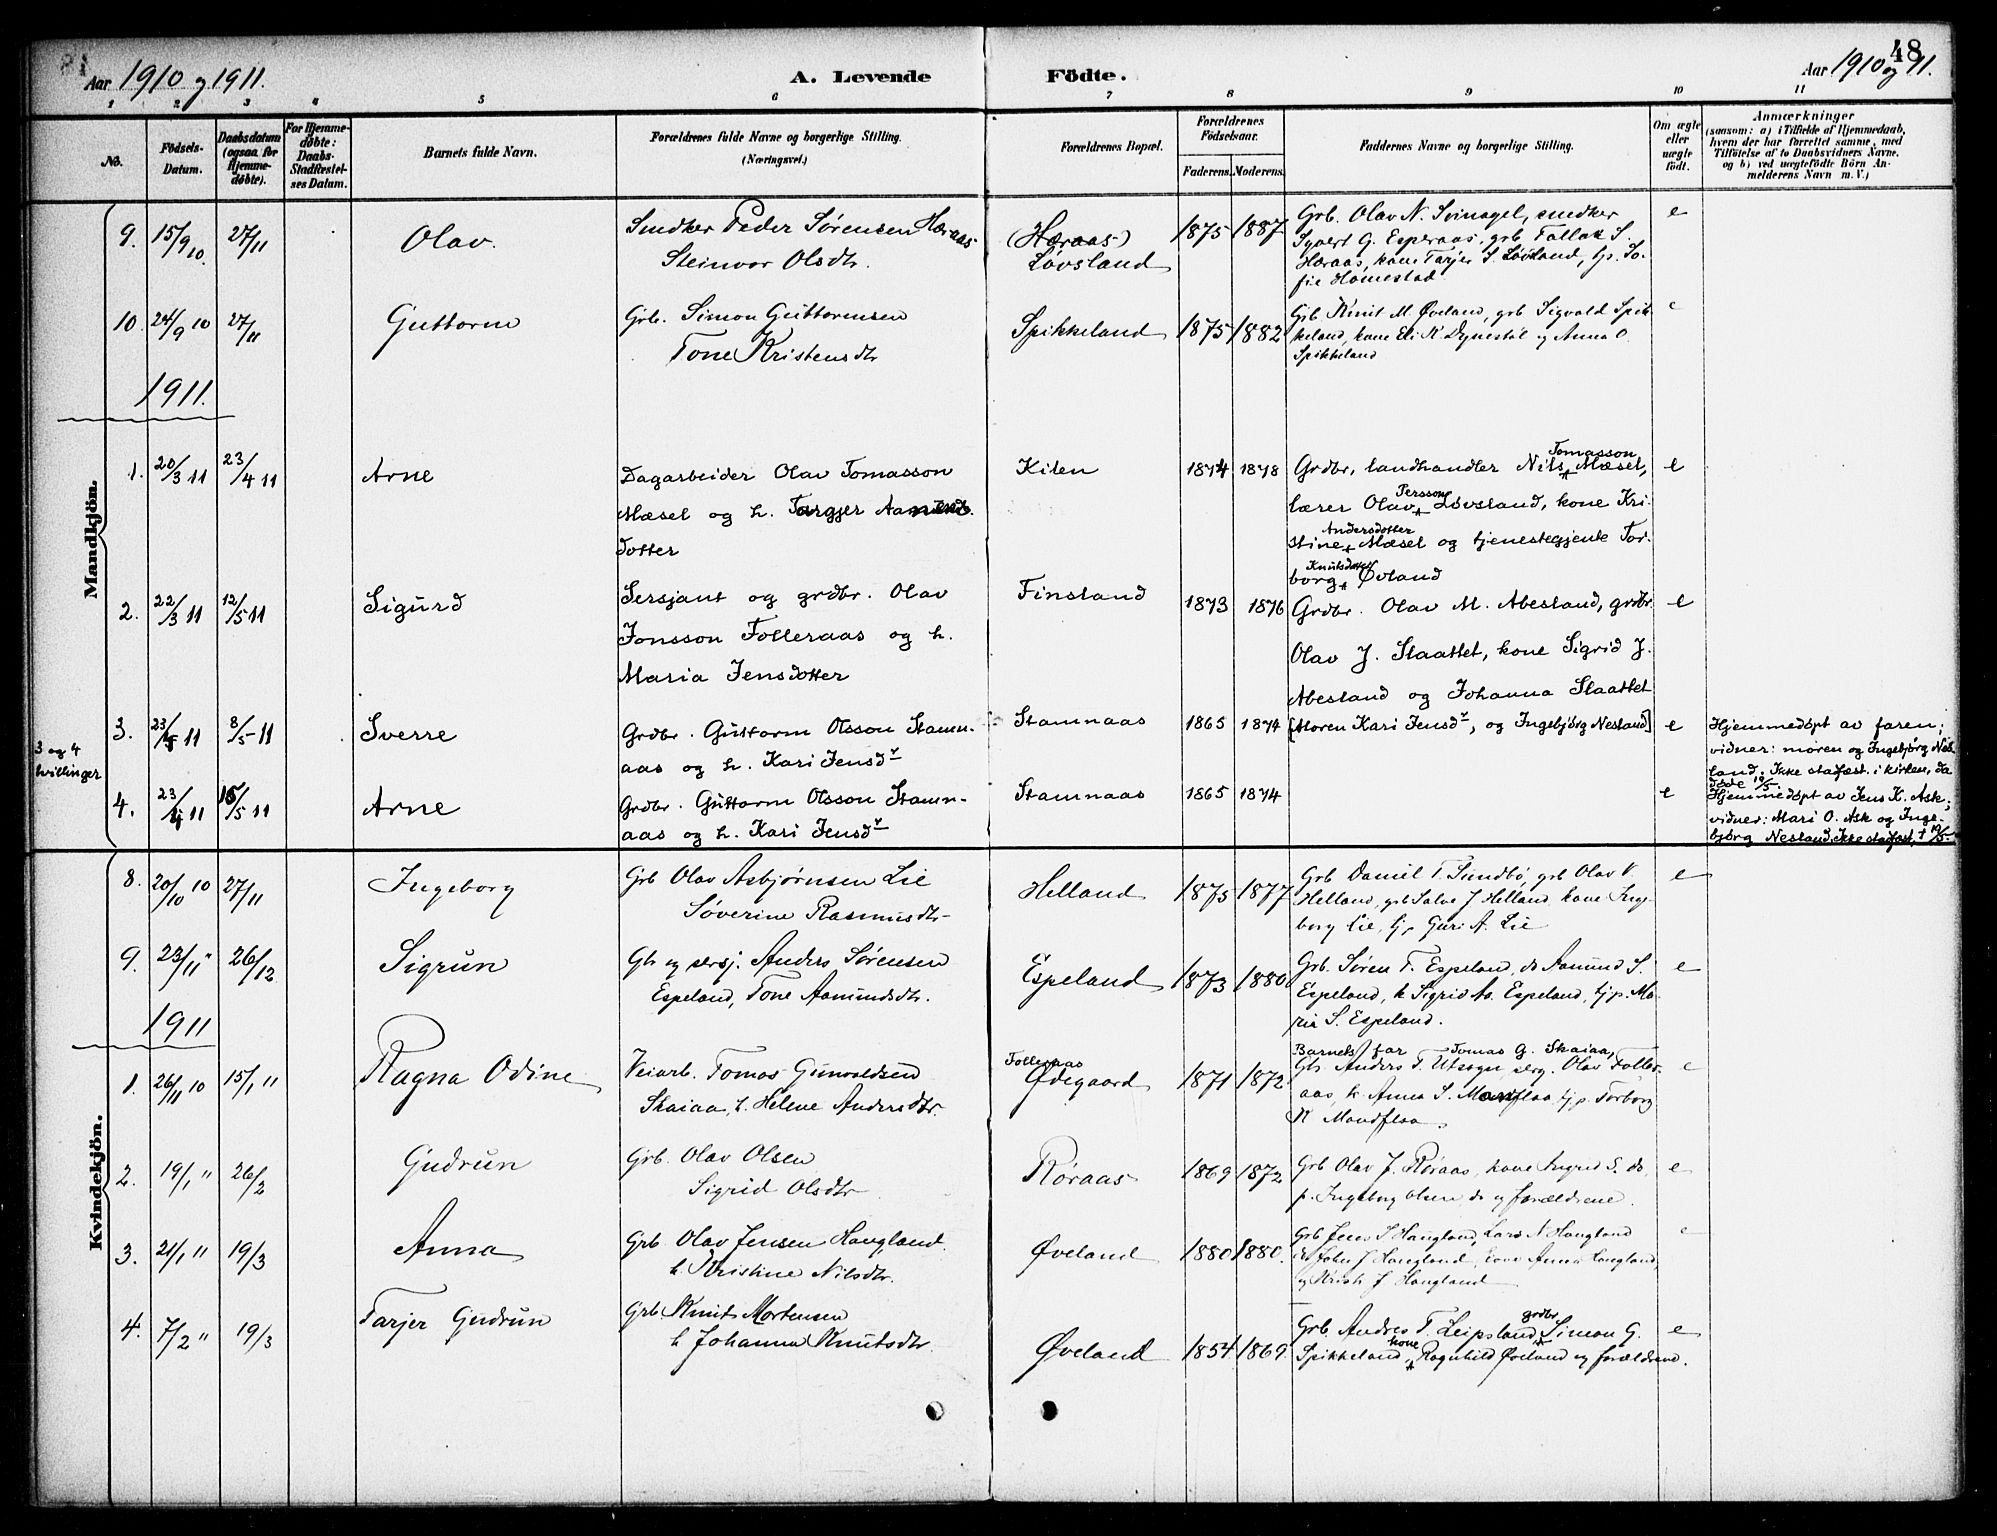 48
Aar 1910 og 1911.
A. Levende Födte.
Aar 1910 og 11.
1 2 3 4 5 6 7 8 9 10 11
No.
Födsels-Datum.
Daabsdatum (ogsaa for Hjemme-døbte).
For Hjemme-døbte: Daabs-Stadfæstel-ses Datum.
Barnets fulde Navn.
Forældrenes fulde Navne og borgerlige Stilling.
(Næringsvei.)
Forældrenes Bopæl.
Forældrenes Födselsaar.
Faderens. Moderens.
Faddernes Navne og borgerlige Stilling.
Om ægte eller uægte födt.
Anmærkninger
(saasom: a) i Tilfælde af Hjemmedaab,
hvem der har forrettet samme, med
Tilföielse af to Daabsvidners Navne,
og b) ved uægtefödte Börn An-
melderens Navn m. V.)
Mandkjön.
9. 15/9 10. 27/11 Olav. Snedker Peder Sørensen Hæraas. Steinvor Olsdtr. (Hæraas) Løvsland 1875 1887 e
Grb. Olav N. Svinagel, snedker
Syvert G. Esperaas, grb Tallak S.
Hæraas, kone Tarjer S. Løvsland, tj. So-
fie Homestad
10. 24/9 10 27/11 Guttorm Grb. Simon Guttormsen Tone Kristensdtr Spikkeland 1875 1882 e
Grb Knut M. Øveland, grb Sigvald Spik-
keland, kone Eli K. Dynestøl og Anna O.
Spikkeland
1911.
1. 20/3 11 23/4 11 Arne
Dagarbeider Olav Tomasson
Mæsel og h. Targjer Aamunds-
dotter
Kilen 1874 1878 e
Tomasson
Grdbr, landhandler Nils Mæsel,
Persson
lærer Olav Løvsland, kone Kri-
Andersdotter
stine Mæsel og tjenestegjente Tor-
Knutsdotter
borg Øvland
2. 22/3 11 12/5 11 Sigurd
Sersjant og grdbr. Olav
Jonsson Folleraas og h.
Maria Jensdotter
Finsland 1873 1876 e
Grdbr. Olav M. Abesland, grdbr.
Olav J. Slaattet, kone Sigrid J.
Abesland og Johanna Slaattet
3 og 4 tvillinger
3. 23/4 11 8/5 11 Sverre
Grdbr. Guttorm Olsson Stamn-
aas og h. Kari Jensdr
Stamnaas 1865 1874 [Moren Kari Jensdr, og Ingebjørg Nesland] e
Hjemmedøpt av faren;
vidner: moren og Ingebjørg Nes-
land. Ikke stafæst. i kirken, da
døde 10/5.
4. 23/4 11 15/5 11 Arne
Grdbr. Guttorm Olsson Stamn-
aas og h. Kari Jensdr
Stamnaas 1865 1874 e
Hjemmedøpt av Jens K. Ask;
vidner: Mari O. Ask og Inge-
bjørg Nesland. Ikke stafæst, † 19/5.
Kvindekjön.
8. 20/10 10 27/11 Ingeborg
Grb Olav Asbjørnsen Lie
Søverine Rasmusdtr
Helland 1875 1877 e
Grb Daniel T. Sundbø, grb Olav V.
Helland, grb Salve J Helland, kone Inge-
borg Lie, tj.p. Guri A. Lie
9. 23/11 " 26/12 Sigrun
Gb og sersj. Anders Sørensen
Espeland, Tone Aamundsdtr.
Espeland 1873 1880 e
Grb. Søren T. Espeland, do Aamund S.
Espeland, k Sigrid As. Espeland, tj.p. Ma-
ria S. Espeland.
1911
1. 26/11 10 15/1 11 Ragna Odine
Veiarb. Tomas Gunvaldsen
Skaiaa, h. Helene Andersdtr.
Folleraas
Ødegaard 1871 1872 e
Barnets far Tomas G. Skaiaa,
Gb. Anders T. Utsogn serg. Olav Foller-
aas, k Anna S. Monflaa tj.p. Torborg
K Mondflaa
2. 19/1 " 26/2 Gudrun
Grb. Olav Olsen
Sigrid Olsdtr
Røraas 1869 1872 e
Grb Olav J. Røraas, kone Ingrid S. do,
p. Ingeborg Olsen do og forældrene.
3. 21/1 " 19/3 Anna
Grb Olav Jensen Haugland.
h. Kristine Nilsdtr.
Øveland 1880 1880. e
Grb Jens S Haugland, Lars N Haugland
John J Haugland, kone Anna Haugland,
og Krist. J Haugland
4. 7/2 " 19/3 Tarjer Gudrun
Grb Knut Mortensen
h Johanna Knutsdtr.
Øveland 1854 1869 e
grdbr.
Grb. Andres T. Leipsland, Simon G.
kone
Spikkeland, Ragnhild Øveland og forældrene.